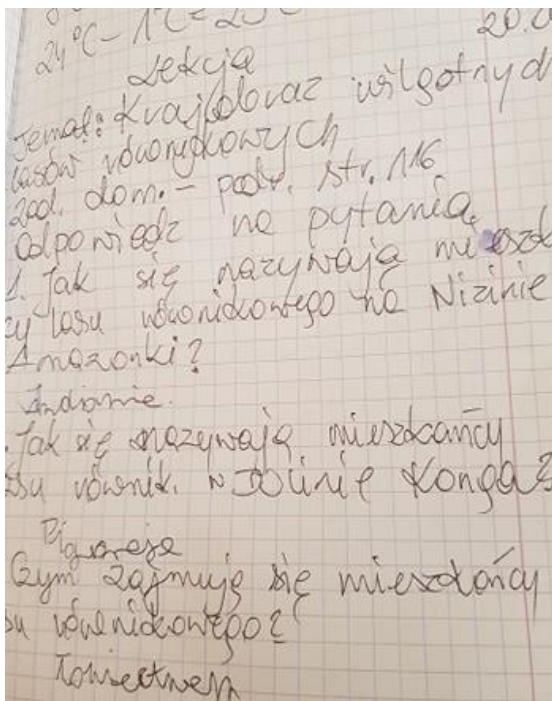 24°C - 1°C = 23°C
20.0
Lekcja
Temat: Krajobraz wilgotnych
lasów równikowych
Zad. dom. - podr. str. 116
Odpowiedz na pytania.
1. Jak się nazywają mieszk
cy lasu równikowego na Nizinie
Amazonki?
Indianie.
. Jak się nazywają mieszkańcy
asu równik. w Dolinie Konga?
Pigmeje
Czym zajmują się mieszkańcy
su równikowego?
Łowiectwem